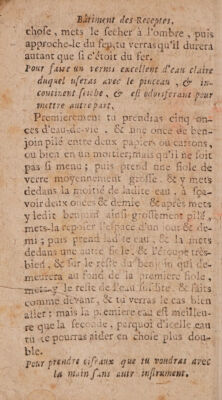 Bâtiment des Receptes,
chose, mets le secher à l'ombre, puis
approche-le du feu, tu verras qu'il durera
autant que si c'étoit du fer.
Pour faire un vernis excellent d'eau claire
duquel useras avec le pinceau, & in-
continent seiche, & est odoriferant pour
mettre autre part.
Premierement tu prendras cinq on-
ces d'eau-de-vie, & une once de ben-
join pilé entre deux papiers ou cartons,
ou bien en un mortier, mais qu'il ne soit
pas si menu; puis prend une fiole de
verre moyennement grosse, & y mets
dedans la moitié de ladite eau, à sça-
voir deux onces & demie & après mets
y ledit benjoin ainsi grossement pilé,
mets-la reposer l'espace d'un jour & de-
mi; puis prend lad te eau, & la mets
dedans une autre fiole, & l'étoupe très-
bien, & sur le reste du benjoin qui de-
meurera au fond de la premiere fiole,
mets y le reste de l'eau susdite, & faits
comme devant, & tu verras le cas bien
aller: mais la premiere eau est meilleu-
re que la seconde, parquoi d'icelle eau
tu te pourras aider en chose plus dou-
ble.
Pour prendre oiseaux que tu voudras avec
la main sans autr instrument.